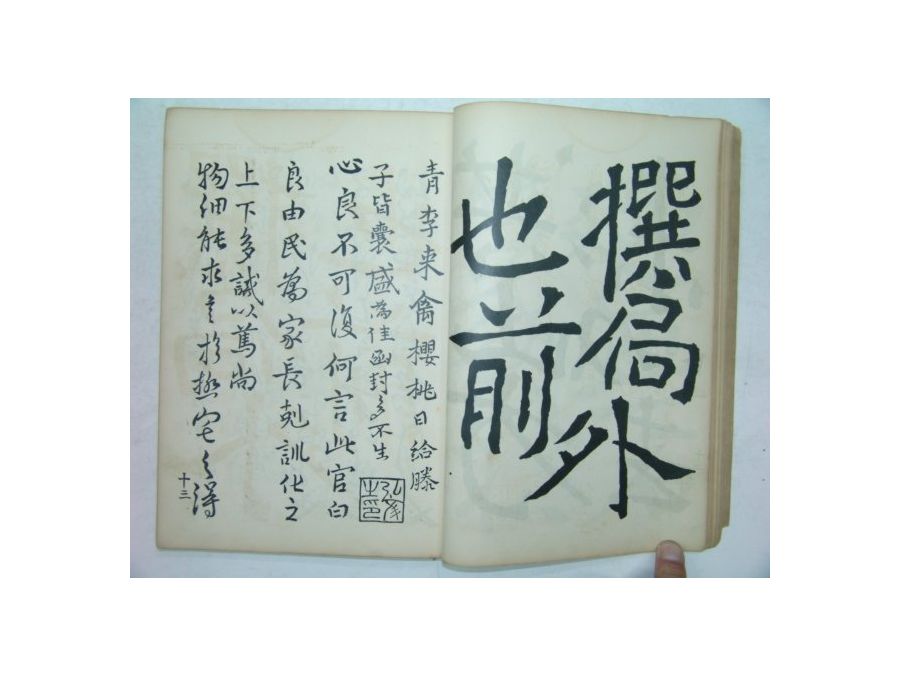 撰外
也前
青李來禽櫻桃日給滕
子皆囊盛為佳函封多不生
心良不可復何言此官白
良由民為家長剋訓化之
上下多誠以篤尚
物細能求於得
十三